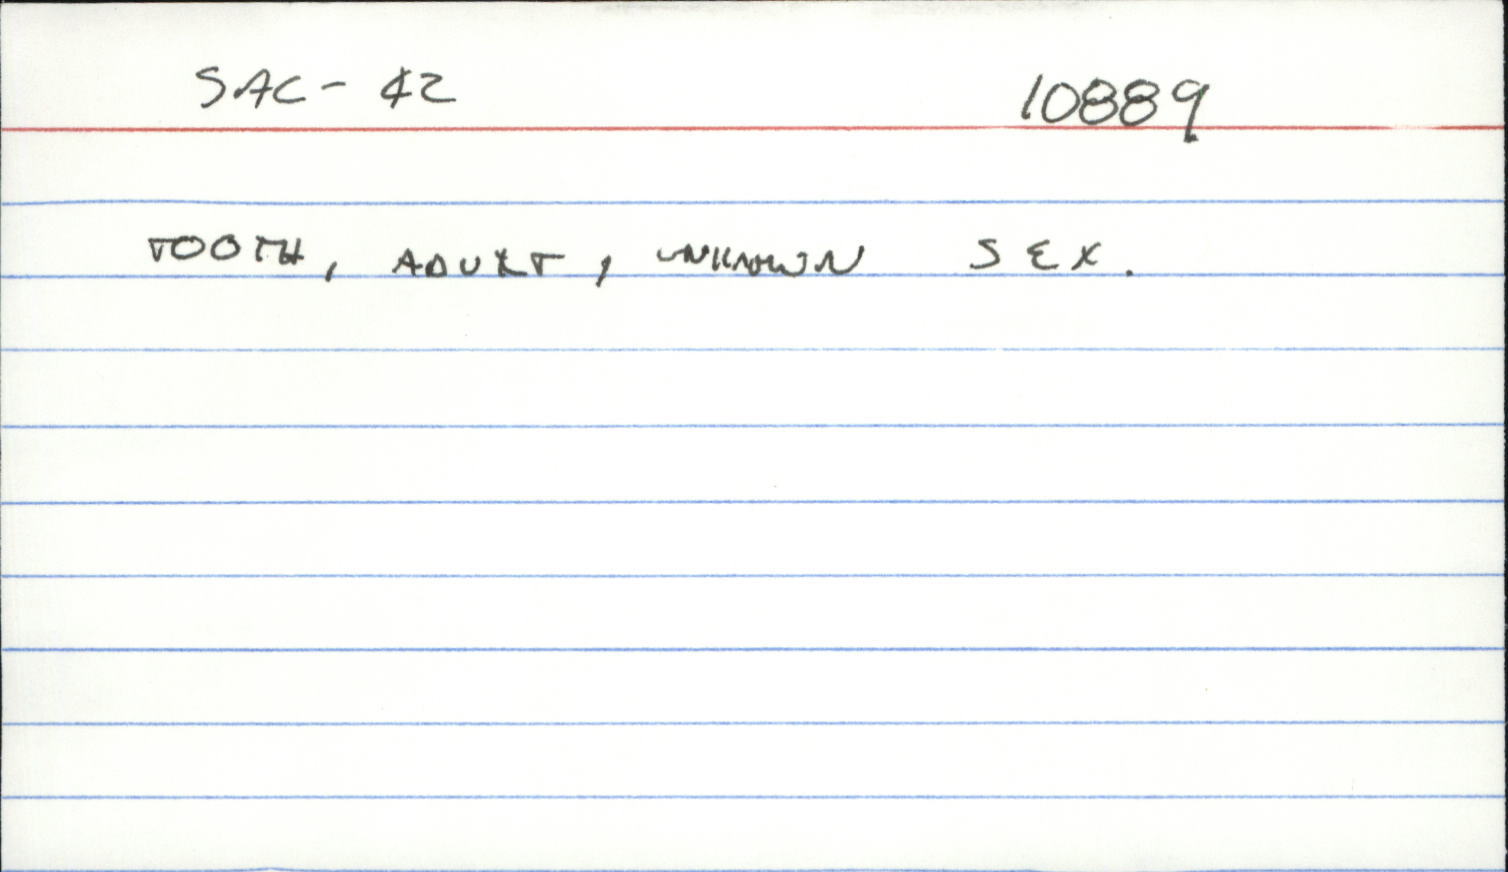 SAC-42 10889
TOOTH, ADULT, UNKNOWN SEX.